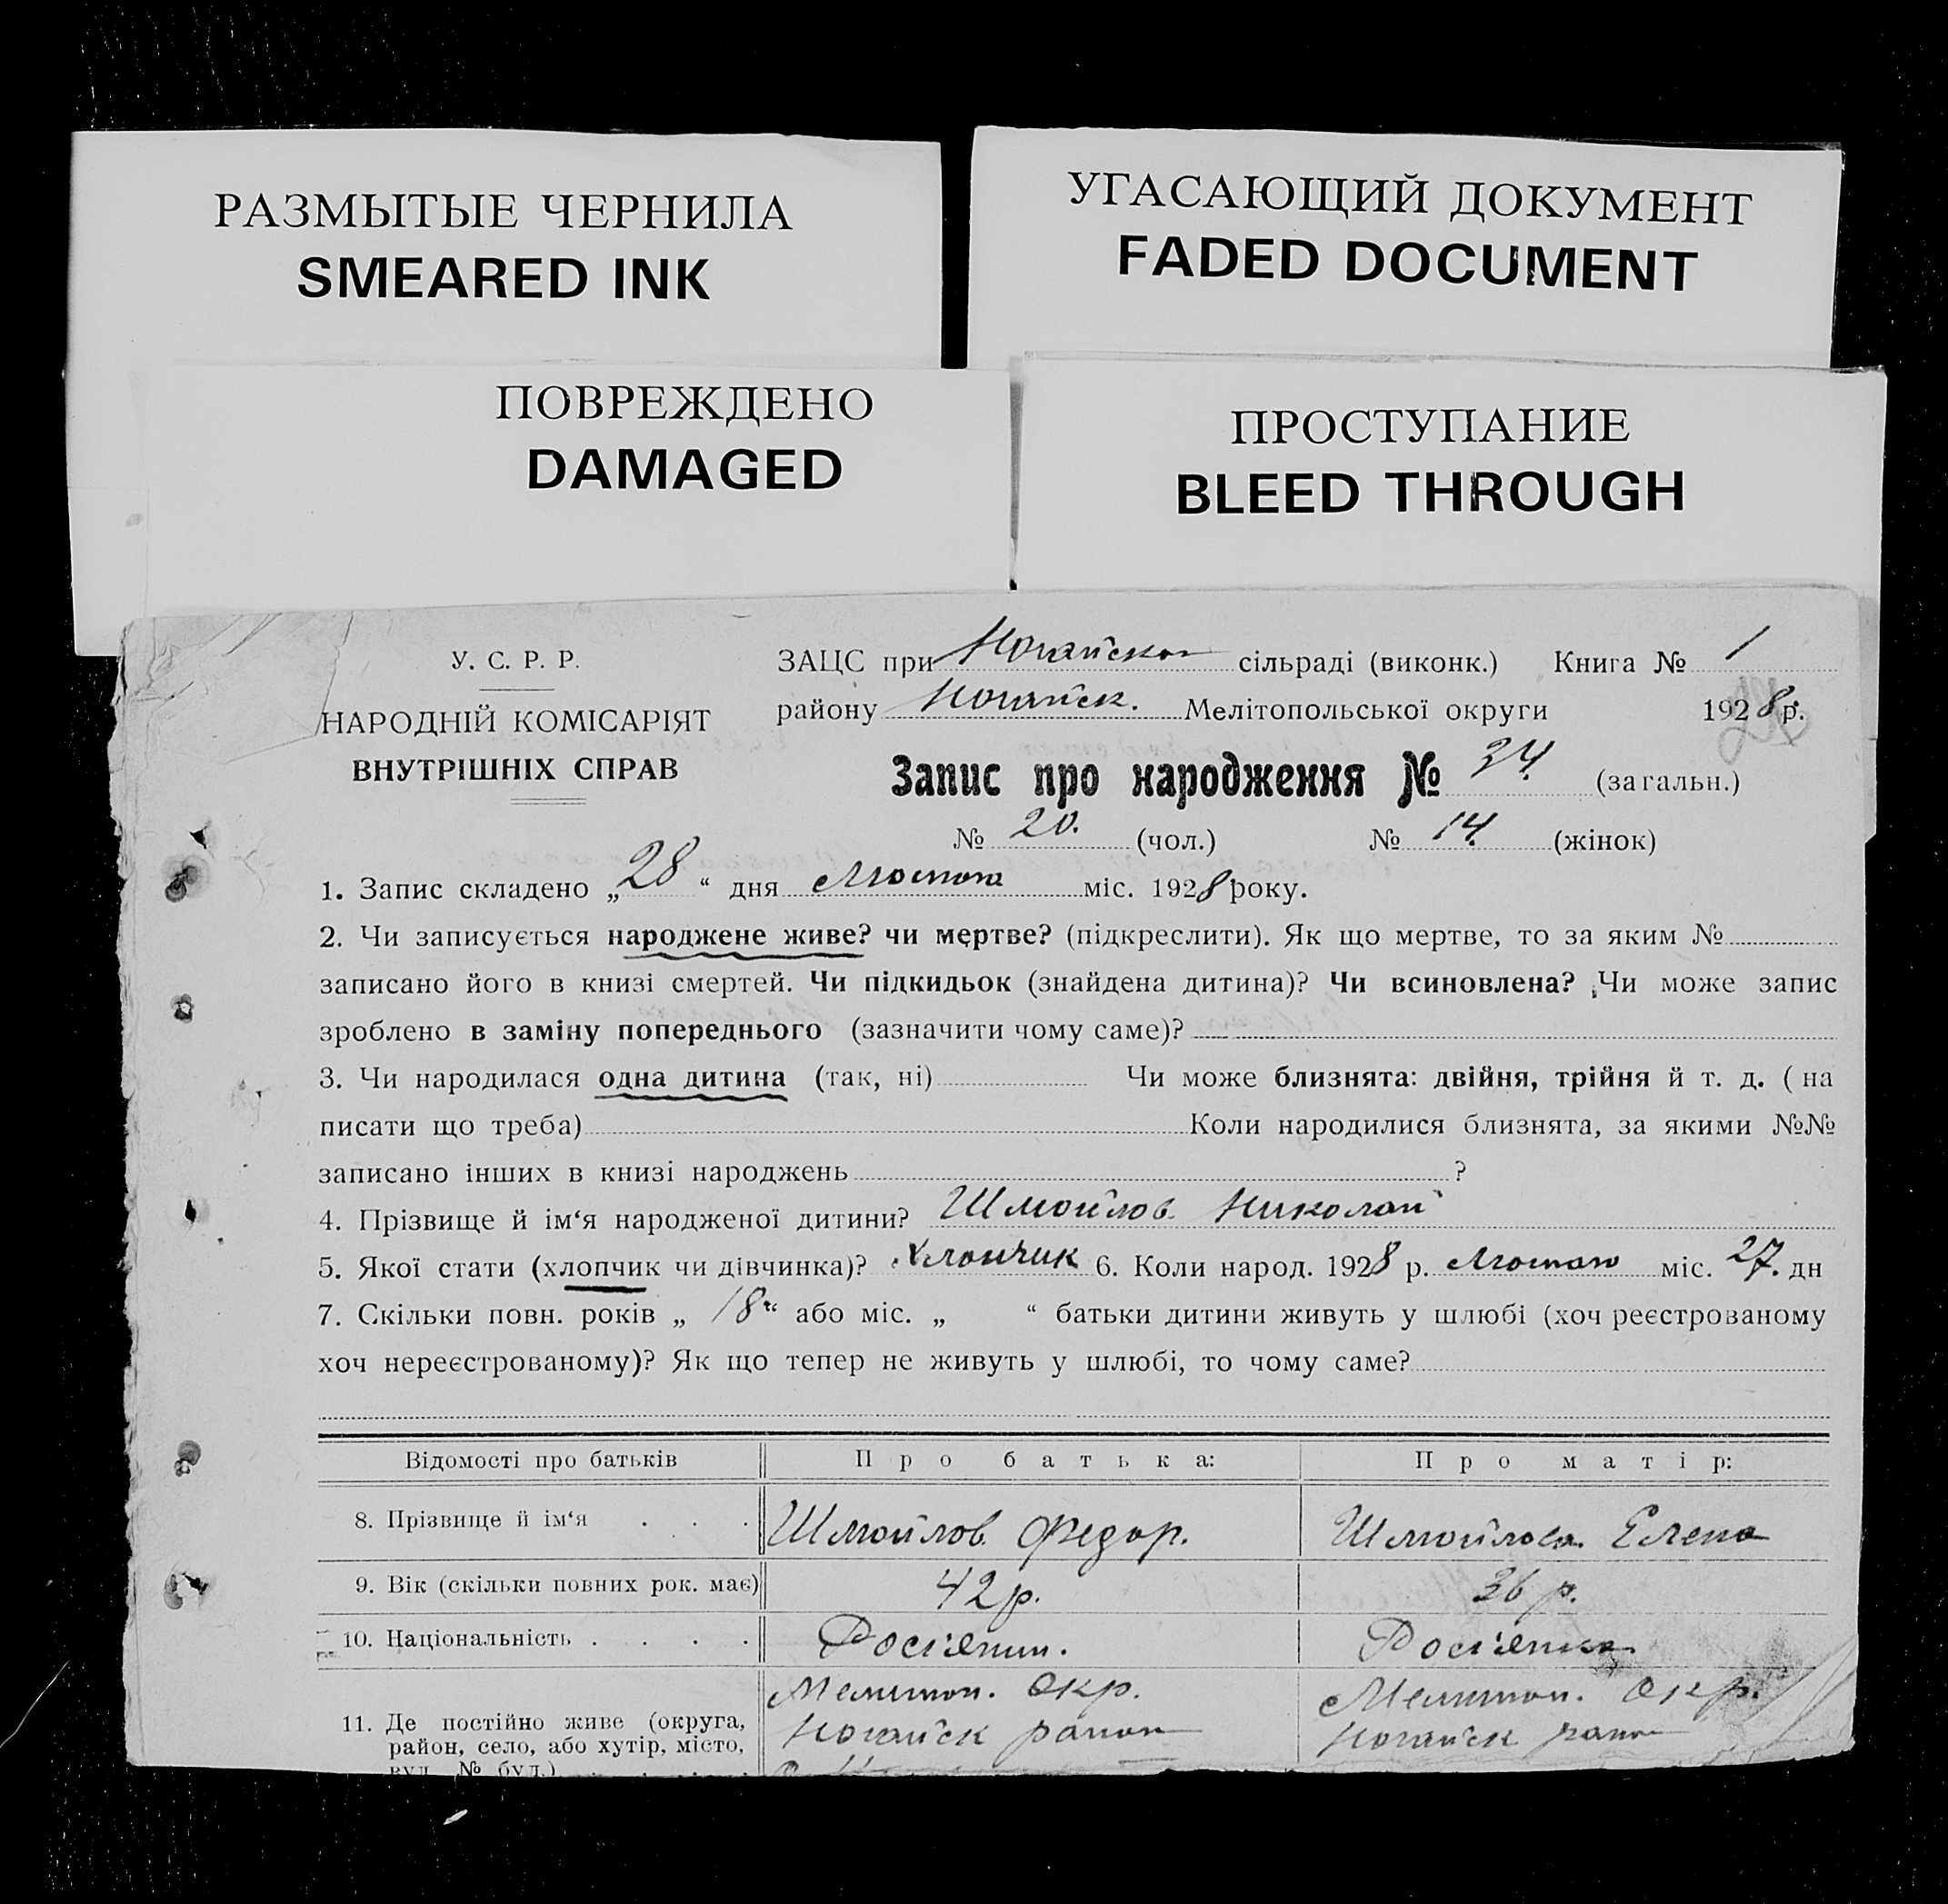 РАЗМЫТЫЕ ЧЕРНИЛА
SMEARED INK
УГАСАЮЩИЙ ДОКУМЕНТ
FADED DOCUMENT
ПОВРЕЖДЕНО
DAMAGED
ПРОСТУПАНИЕ
BLEED THROUGH
У. С. Р. Р.
НАРОДНІЙ КОМІСАРІЯТ
ВНУТРІШНІХ СПРАВ
ЗАЦС при Ногайской сільраді (виконк.) Книга № 1
району Ногайск. Мелітопольської округи 1928 р.
Запис про народження № 34. (загальн.)
№ 20. (чол.) № 14. (жінок)
1. Запис складено „28“ дня Лютого міс. 1928 року.
2. Чи записується народжене живе? чи мертве? (підкреслити). Як що мертве, то за яким №
записано його в книзі смертей. Чи підкидьок (знайдена дитина)? Чи всиновлена? Чи може запис
зроблено в заміну попереднього (зазначити чому саме)?
3. Чи народилася одна дитина (так, ні) Чи може близнята: двійня, трійня й т. д. (на
писати що треба) Коли народилися близнята, за якими №№
записано інших в книзі народжень ?
4. Прізвище й ім‘я народженої дитини? Шмойлов Николай
5. Якої стати (хлопчик чи дівчинка)? Хлопчик 6. Коли народ. 1928 р. Лютого міс. 27. дн
7. Скільки повн. років „18“ або міс. „ “ батьки дитини живуть у шлюбі (хоч реєстрованому
хоч нереєстрованому)? Як що тепер не живуть у шлюбі, то чому саме?
Відомості про батьків Про батька: Про матір:
8. Прізвище й ім‘я . . . Шмойлов Федор. Шмойлова Елена
9. Вік (скільки повних рок. має) 42 р. 36 р.
10. Національність . . . . Росіянин. Росіянка
Мелитоп. Окр. Мелитоп. Окр.
11. Де постійно живе (округа, Ногайск район Ногайск район
район, село, або хутір, місто,
вул. № буд.)